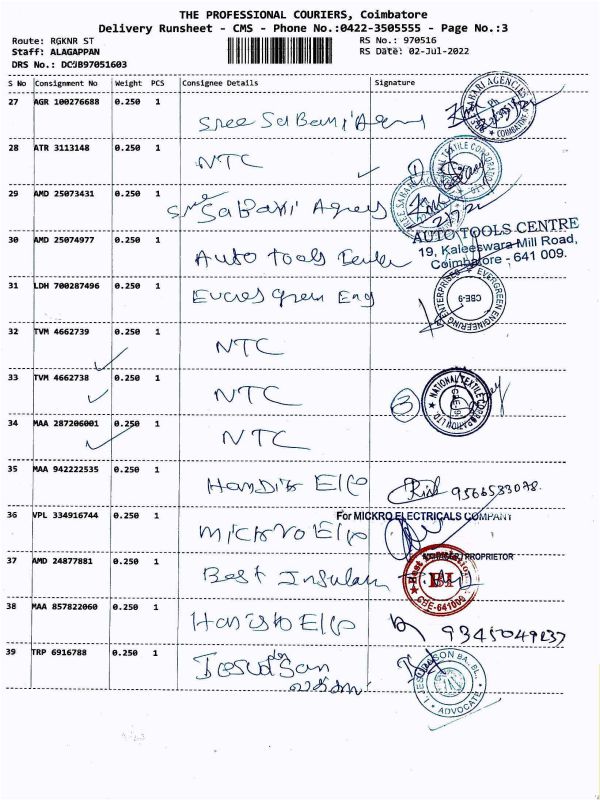 THE PROFESSIONAL COURIERS, Coimbatore
Delivery Runsheet - CMS - Phone No.:0422-3505555 - Page No.:3
Route: RGKNR ST
RS No.: 970516
Staff: ALAGAPPAN
RS Date: 02-Jul-2022
DRS No.: DC9B97051603
S No Consignment No Weight PCS Consignee Details Signature
27 AGR 100276688 0.250 1
SABARI AGENCIES
COIMBATORE
Sree Sabari Agency
28 ATR 3113148 0.250 1
NTC
29 AMD 25073431 0.250 1
SREE SABARI AGENCIES
Sree Sabari
2/7/22
30 AMD 25074977 0.250 1
AUTO TOOLS CENTRE
19, Kaleeswara Mill Road,
Coimbatore - 641 009.
Auto Tools
31 LDH 700287496 0.250 1
EVERGREEN ENGINEERING ENTERPRISES
CBE-9
Eng
32 TVM 4662739 0.250 1
NTC
33 TVM 4662738 0.250 1
NATIONAL TEXTILE CORPORATION LTD.
CBE-9
NTC
3
34 MAA 287206001 0.250 1
NTC
35 MAA 942222535 0.250 1
36 VPL 334916744 0.250 1
For MICKRO ELECTRICALS COMPANY
Mickro
PROPRIETOR
37 AMD 24877881 0.250 1
BI
CBE-641009
Best Insulation
38 MAA 857822060 0.250 1
39 TRP 6916788 0.250 1
I. JESUDASON BA. BL.
ADVOCATE